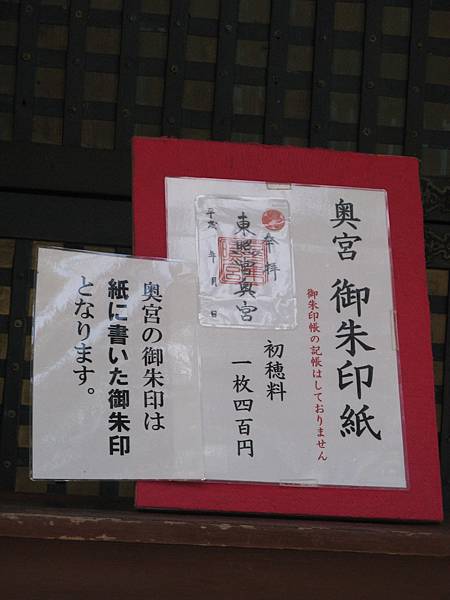 奥宮 御朱印紙
御朱印帳の記帳はしておりません
初穂料
一枚四百円
奉拝
東照宮奥宮
平成 年 月 日
奥宮の御朱印は
紙に書いた御朱印
となります。